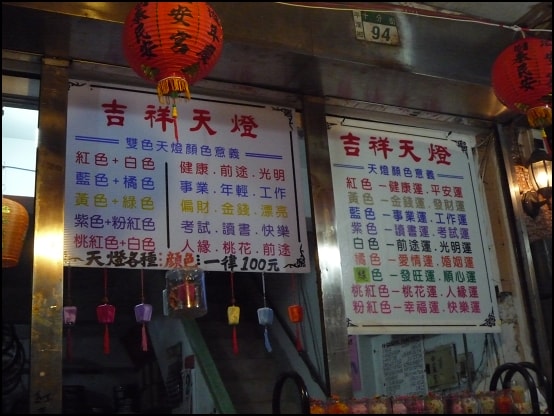 安宮
94
吉祥天燈
雙色天燈顏色意義
紅色+白色 健康.前途.光明
藍色+橘色 事業.年輕.工作
黃色+綠色 偏財.金錢.漂亮
紫色+粉紅色 考試.讀書.快樂
桃紅色+白色 人緣.桃花.前途
天燈各種顏色一律100元
吉祥天燈
天燈顏色意義
紅色—健康運.平安運
黃色—金錢運.發財運
藍色—事業運.工作運
紫色—讀書運.考試運
白色—前途運.光明運
橘色—愛情運.婚姻運
綠色—發旺運.順心運
桃紅色—桃花運.人緣運
粉紅色—幸福運.快樂運